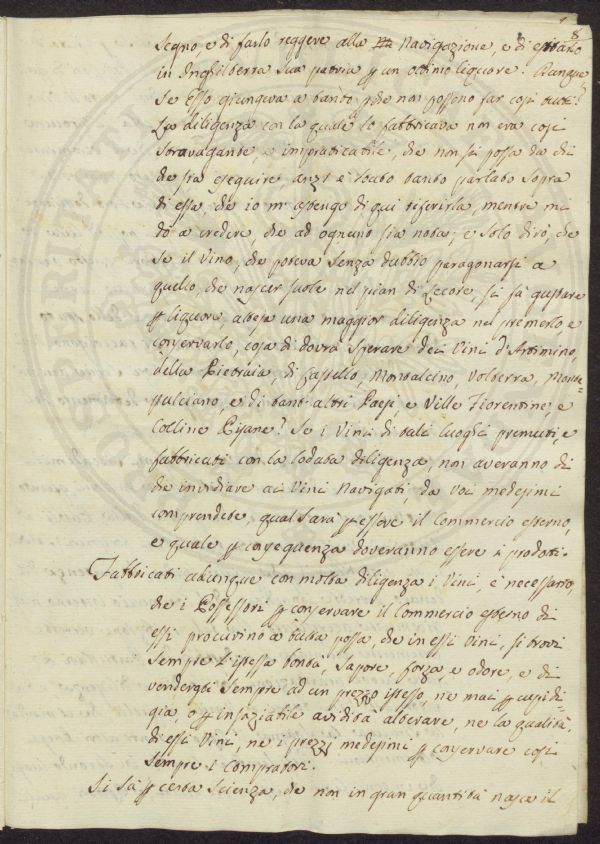 8
segno, e di farlo reggere alla Navigazione, e di esitarlo
in Inghilterra sua patria p un ottimo liquore? Adunque
se esso giungeva a tanto, pche non possono far così tutti?
La diligenza con la quale lo fabbricava non era così
stravagante, e impraticabile, che non si possa da chi
che sia eseguire, anzi è stato tanto parlato sopra
di essa, che io m' astengo di qui riferirla, mentre mi
dò a credere che ad ognuno sia nota; e solo dirò, che
se il Vino, che poteva senza dubbio paragonarsi a
quello, che nascer suole nel pian di Lecore, si fà gustare
p liquore, atesa una maggior diligenza nel premerlo e
conservarlo, cosa si dovrà sperare dei Vini d'Artimino,
della Pietraia, di Castello, Montalcino, Volterra, Monte=
pulciano, e di tanti altri Paesi, e Ville Fiorentine, e
Colline Pisane? Se i Vini di tali luoghi premuti, e
fabbricati con la lodata diligenza, non averanno di
che invidiare ai Vini Navigati da voi medesimi
comprendete, qual sarà p essere il Commercio esterno,
e quale p conseguenza doveranno essere i prodotti.
Fabbricati adunque con molta diligenza i Vini, è necessario,
che i Possessori p conservare il Commercio esterno di
essi procurino a tutta possa, che in essi Vini, si trovi
sempre l'istessa bontà, sapore, forza, e odore, e di
vendergli sempre ad un prezzo istesso, ne mai p cupidi=
gia, o p insaziabile avidità alterare, ne la qualità,
di essi Vini, ne i prezzi medesimi p conservare così
sempre i Compratori.
Si sà p certa scienza, che non in gran quantità nasce il